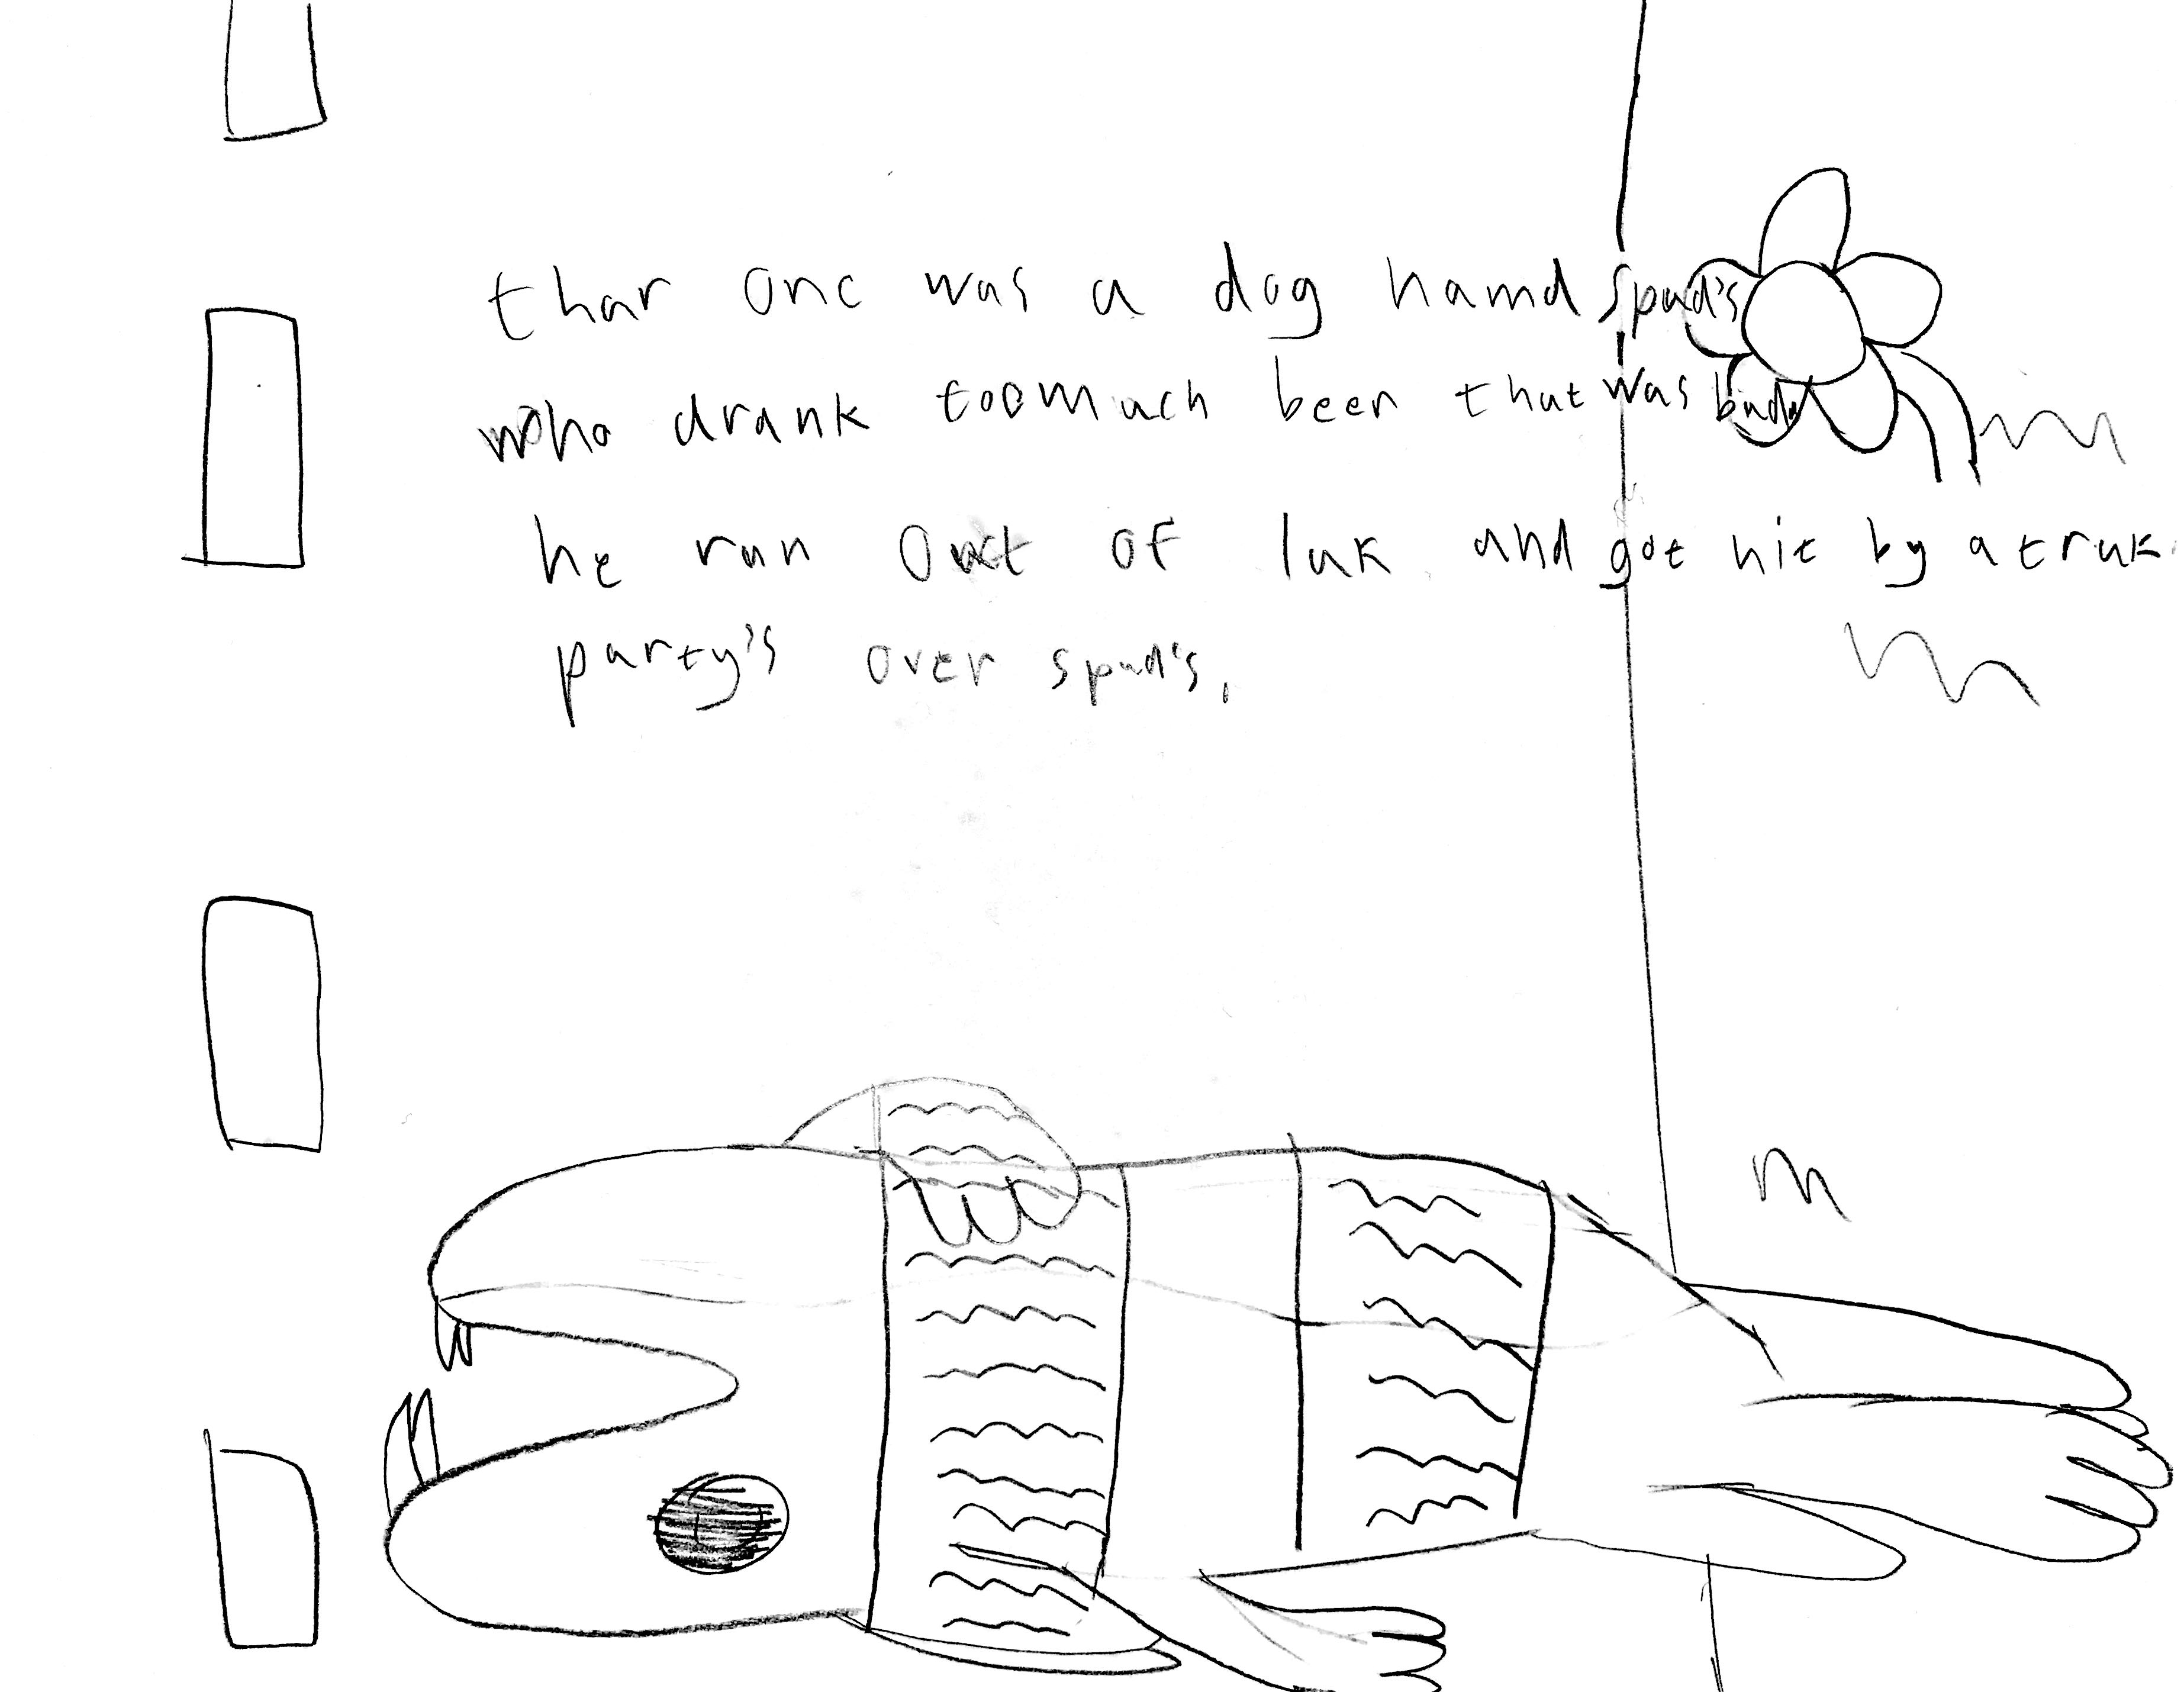 thar onc was a dog namd spud's
who drank toomuch beer that was bud
he run out of luk and got hit by a truk.
party's over spud's,